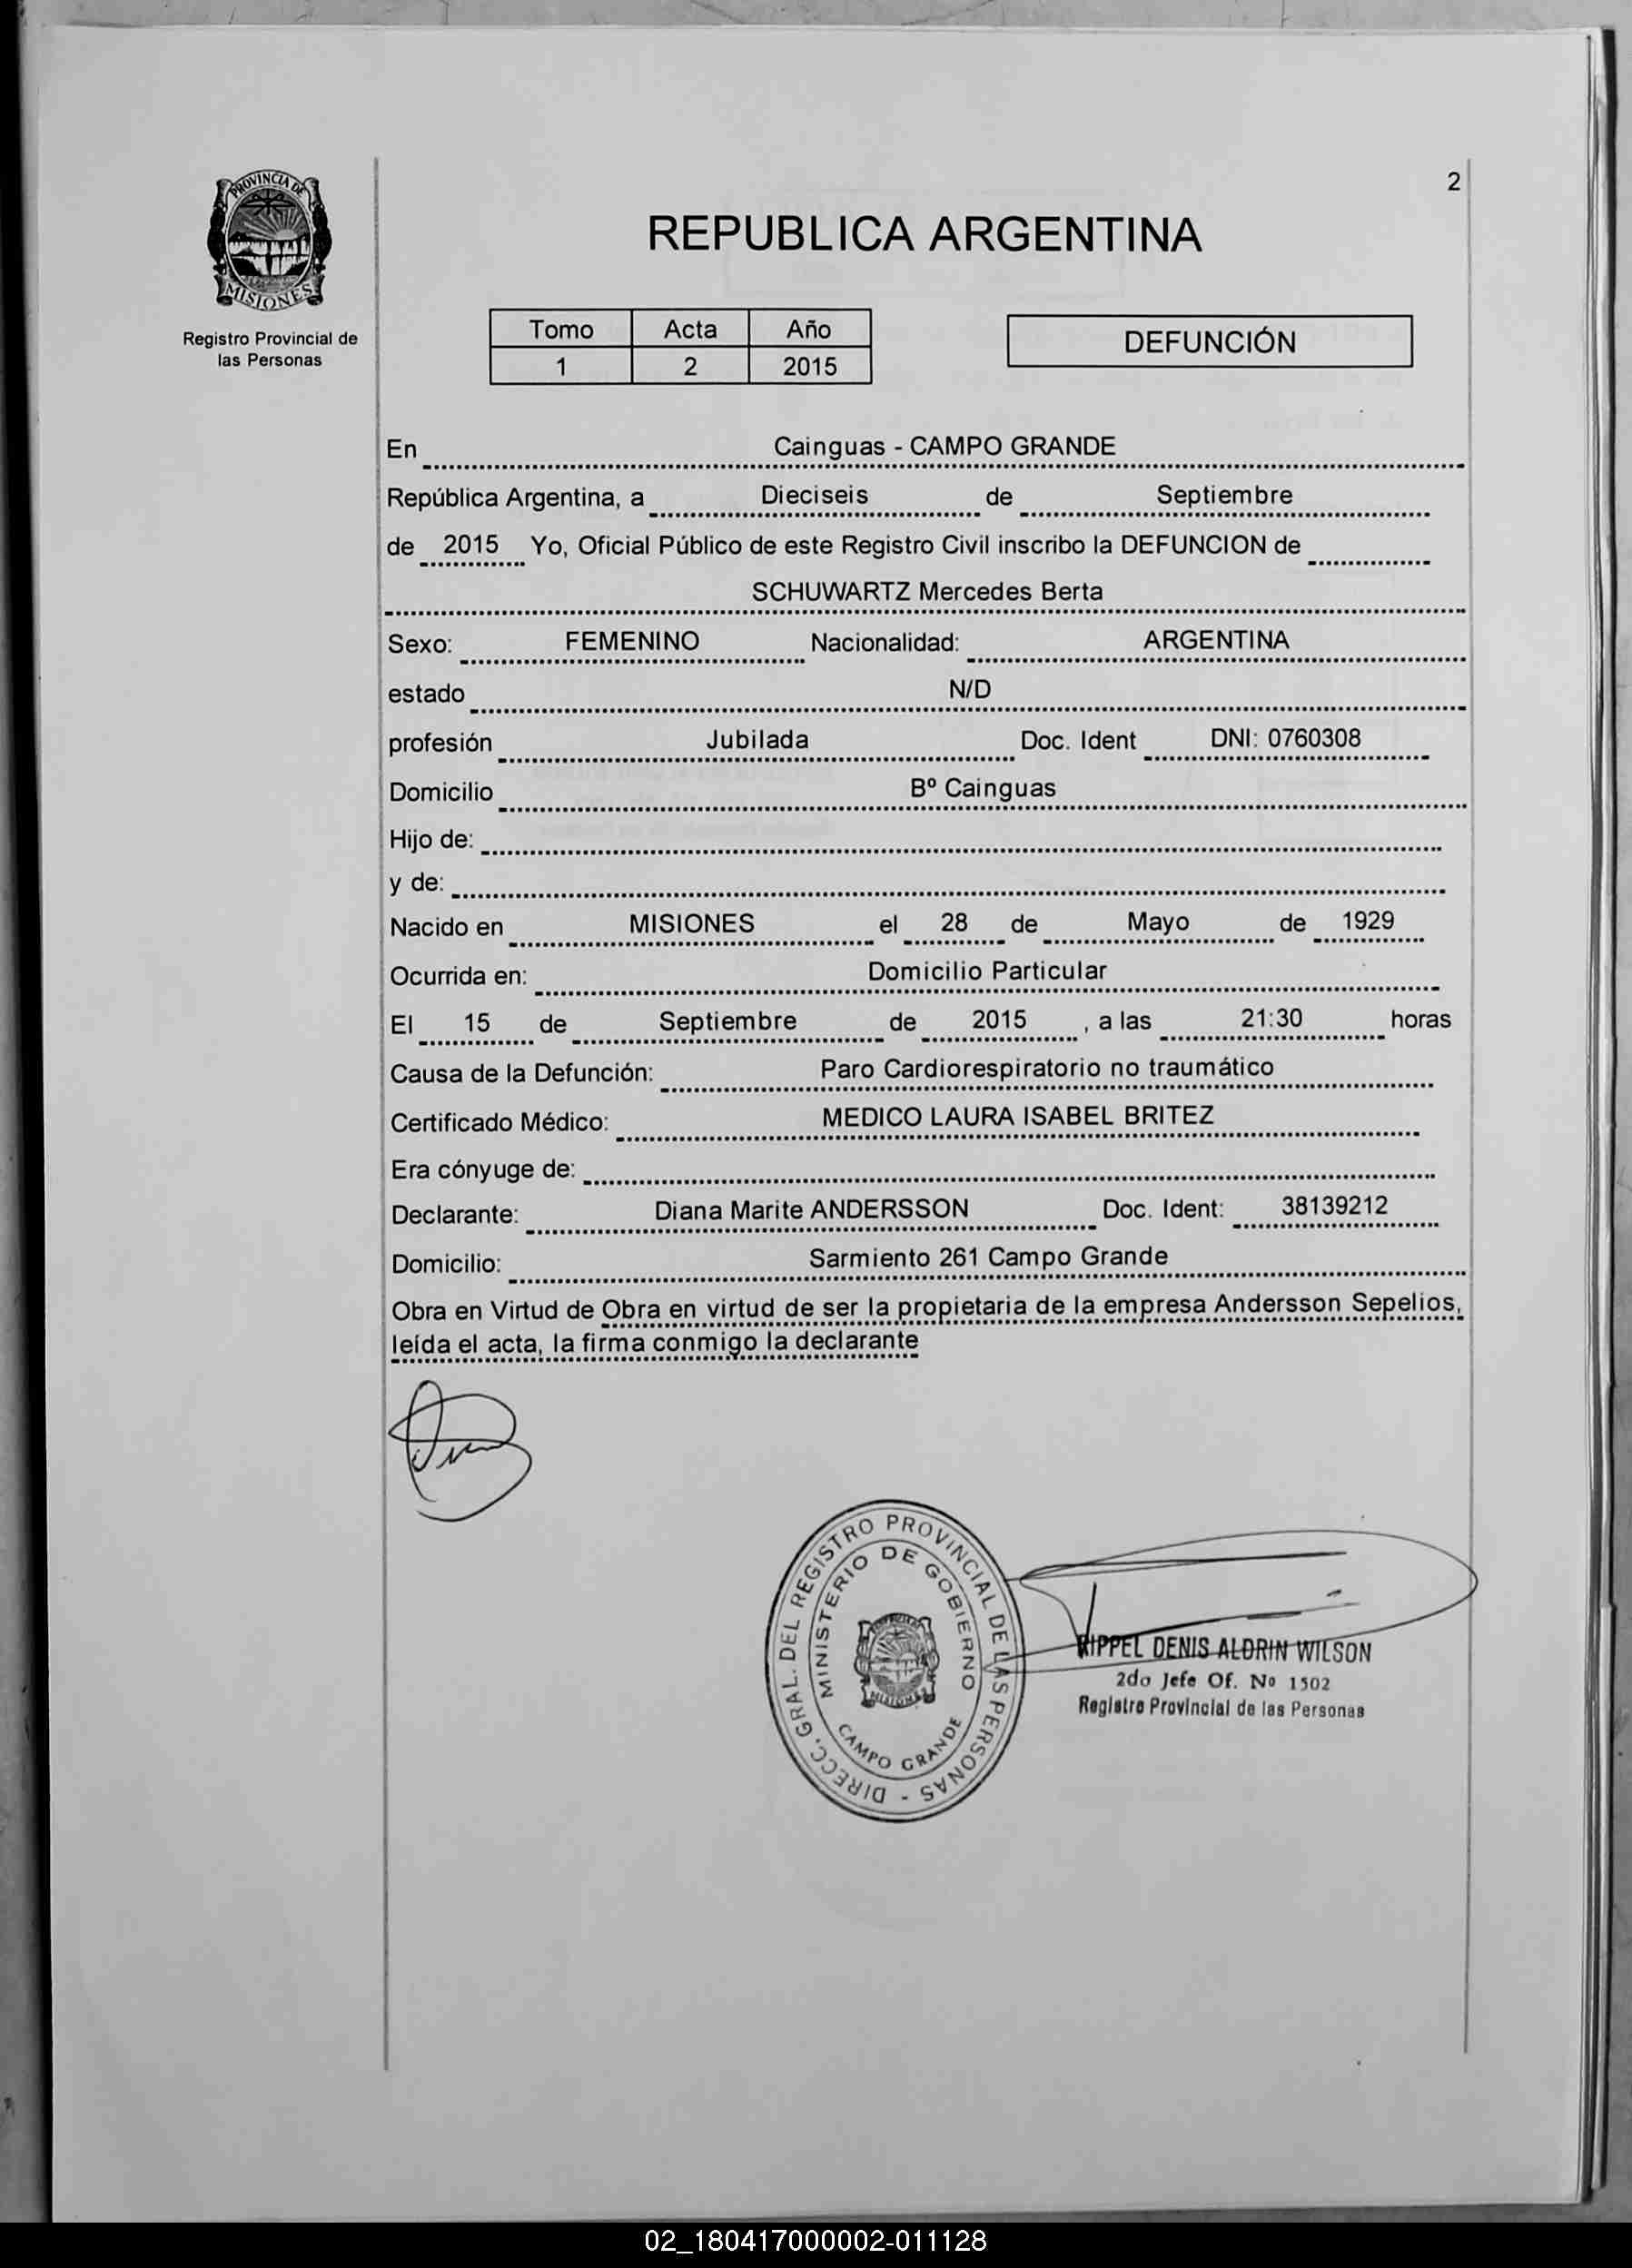 2
PROVINCIA DE
MISIONES
Registro Provincial de
las Personas
REPUBLICA ARGENTINA
Tomo Acta Año
1 2 2015
DEFUNCIÓN
En Cainguas - CAMPO GRANDE
República Argentina, a Dieciseis de Septiembre
de 2015 Yo, Oficial Público de este Registro Civil inscribo la DEFUNCION de
SCHUWARTZ Mercedes Berta
Sexo: FEMENINO Nacionalidad: ARGENTINA
estado N/D
profesión Jubilada Doc. Ident DNI: 0760308
Domicilio Bº Cainguas
Hijo de:
y de:
Nacido en MISIONES el 28 de Mayo de 1929
Ocurrida en: Domicilio Particular
El 15 de Septiembre de 2015 , a las 21:30 horas
Causa de la Defunción: Paro Cardiorespiratorio no traumático
Certificado Médico: MEDICO LAURA ISABEL BRITEZ
Era cónyuge de:
Declarante: Diana Marite ANDERSSON Doc. Ident: 38139212
Domicilio: Sarmiento 261 Campo Grande
Obra en Virtud de Obra en virtud de ser la propietaria de la empresa Andersson Sepelios,
leída el acta, la firma conmigo la declarante
DIRECC. GRAL. DEL REGISTRO PROVINCIAL DE LAS PERSONAS -
MINISTERIO DE GOBIERNO
CAMPO GRANDE
RIPPEL DENIS ALDRIN WILSON
2do Jefe Of. Nº 1502
Registro Provincial de las Personas
02_180417000002-011128